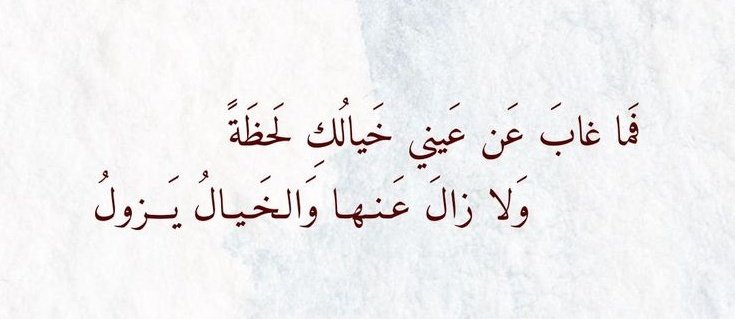 فَما غابَ عَن عَيني خَيالُكِ لَحظَةً
وَلا زالَ عَنها وَالخَيالُ يَزولُ